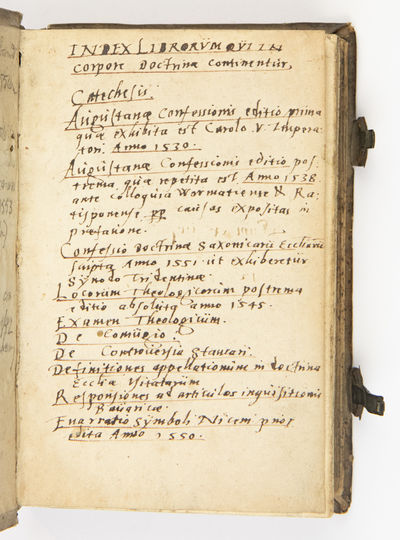 INDEX LIBRORUM QUI IN
corpore Doctrinæ continentur,
Catechesis.
Augustanæ Confessionis editio prima
quæ exhibita est Carolo .V. Impera-
tori. Anno 1530.
Augustanæ Confessionis editio pos-
trema, quæ repetita est Anno 1538.
ante colloquia Wormatiense & Ra-
tisponense pp causas expositas in
præfatione.
Confessio Doctrinæ Saxonicarū Eccliarū
scripta Anno 1551. ut exhiberetur
Synodo Tridentinæ.
Locorum Theologicorum postrema
editio absoluta anno 1545.
Examen Theologicum.
De Coniugio.
De Controversia Stancari.
Definitiones appellationum in doctrina
Ecclīa Usitatarum
Responsiones ad articulos inquisitionis
Bauaricæ.
Enarratio Symboli Niceni prior
edita Anno 1550.